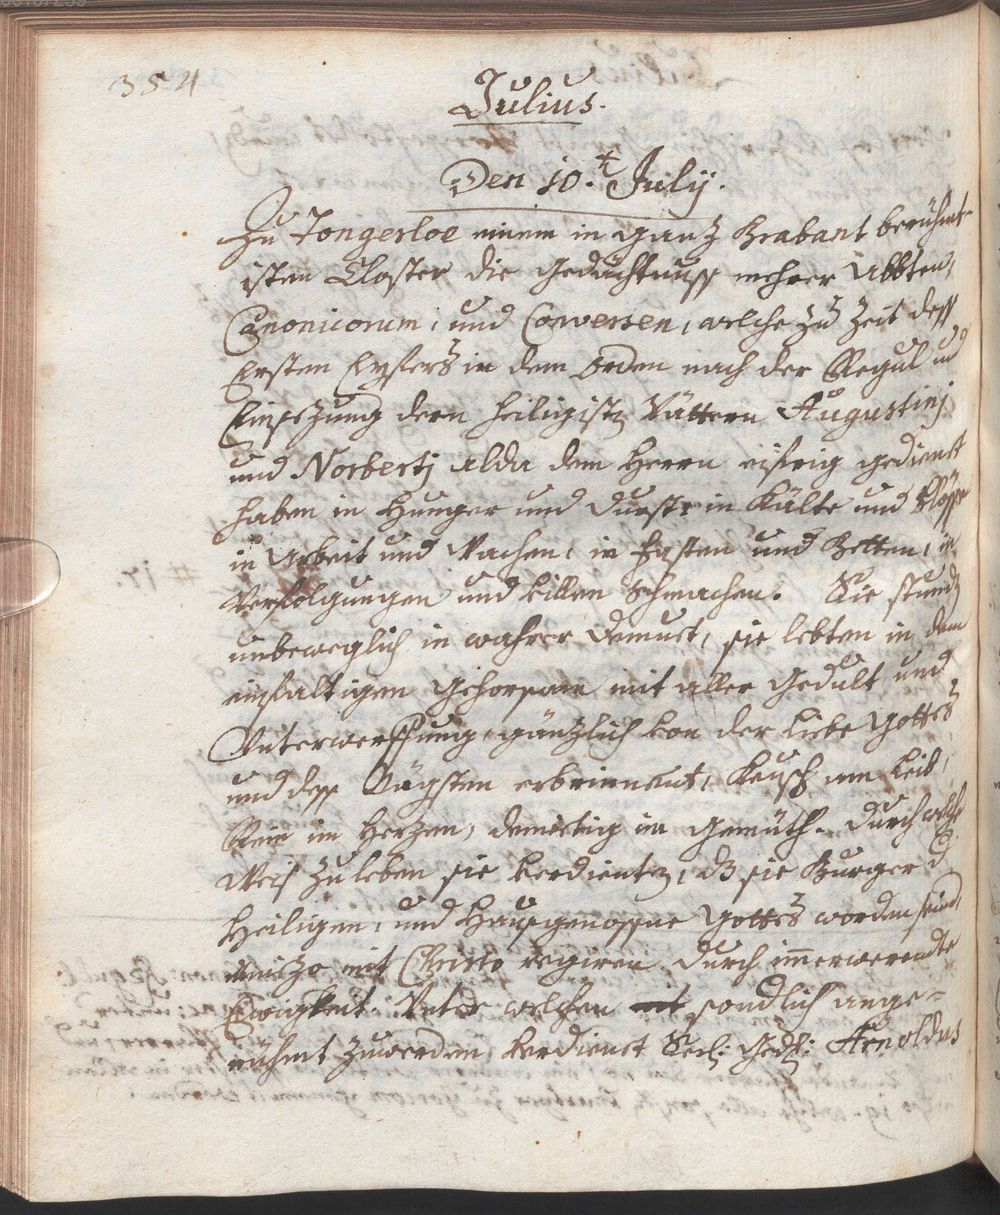 354
Julius.
Den 10.t July.
Zu Tongerloe einem in ganz Brabant berühmt-
isten Closter die gedächtnuss mehrer Abbten,
Canonicorum, und Conversen, welche zu Zeit dess
Ersten Eyfers in dem Orden nach der Regul und
Einsezung dern heiligistn Vättern Augustinj
und Norbertj alda dem Herrn eifrig gedient
haben in Hunger und Durst, in Kälte und Blösse
in Arbeit und Wachen, in Fasten und Betten, in
Verfolgungen und villen Schmachen. Sie stundn
unbeweglich in wahrer Demuet, sie lebten in dem
einfaltigen gehorsam mit aller Gedult und
Unterwerffung, gänzlich von der Liebe Gottes
und dess Nägsten erbrinnent, Keusch am Leib,
Rein im Herzen, demietig im gemüth. Durch welche
Weis zu leben sie verdientn, dz sie Burger d.
Heiligen, und Hausgenossne Gottes worden seind,
anizo mit Christo regiren durch immerwerendte
Ewigkeit. Unter welchen sondlich ange-
rühmt zuwerden verdienet Seel: Gedh: Arnoldus